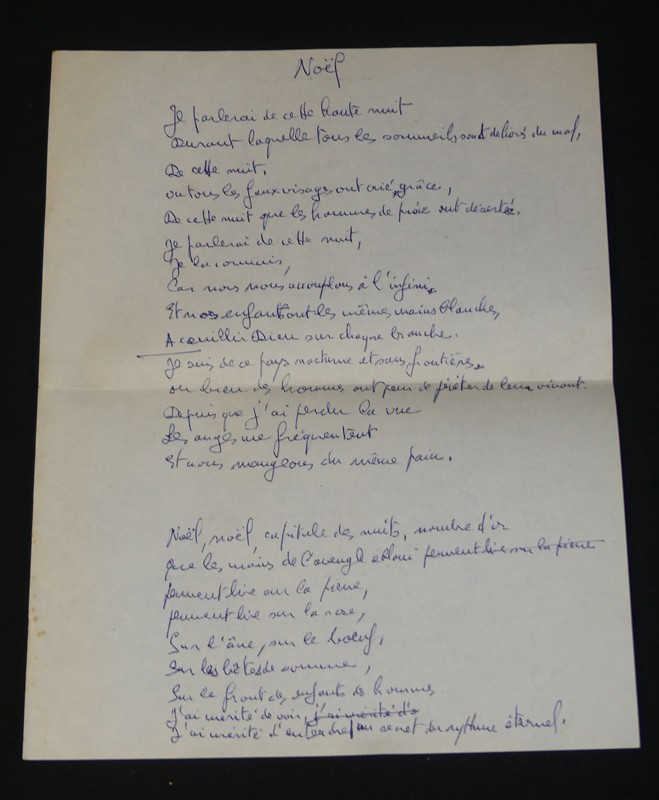 Noël
Je parlerai de cette haute nuit
Durant laquelle tous les sommeils sont délivrés du mal,
De cette nuit,
où tous les faux visages ont crié grâce,
De cette nuit que les hommes de proie ont désertée.
Je parlerai de cette nuit,
Je la connais,
Car nous nous accouplons à l'infini
Et nos enfants ont les mêmes mains blanches,
A cueillir Dieu sur chaque branche.
Je suis de ce pays nocturne et sans frontières
où bien des hommes ont peur de pénétrer de leur vivant.
Depuis que j'ai perdu la vue
Les anges me fréquentent
Et nous mangeons du même pain.
Noël, noël capitale des nuits, nombre d'or
que les mains de l'aveugle ébloui peuvent lire sur la pierre
peuvent lire sur la pierre,
peuvent lire sur la rose,
Sur l'âne, sur le boeuf,
Sur les bêtes de somme,
Sur le front des enfants des hommes
J'ai mérité de voir, j'ai mérité d'e
J'ai mérité d'entendre au secret du rythme éternel.